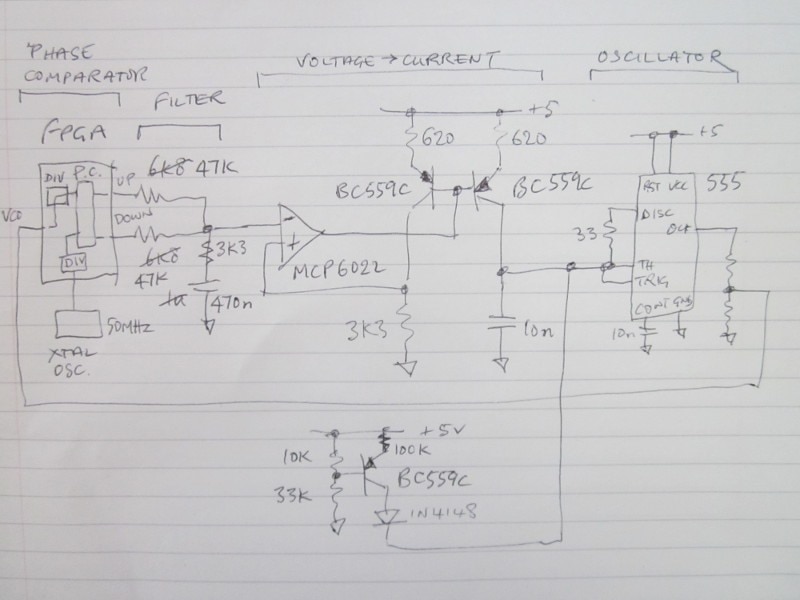 PHASE
COMPARATOR
VOLTAGE → CURRENT
OSCILLATOR
FILTER
FPGA
+5
620
620
6K8 47K
DIV P.C. UP
VCO
BC559C
BC559C
+5
RST VCC 555
DISC
OUT
DOWN
33
-
+
3K3
MCP6022
TH
TRIG
DIV
6K8
47K
1u 470n
CONT GND
50MHZ
3K3
10n
10n
XTAL
OSC.
+5V
10K
100K
BC559C
33K
1N4148